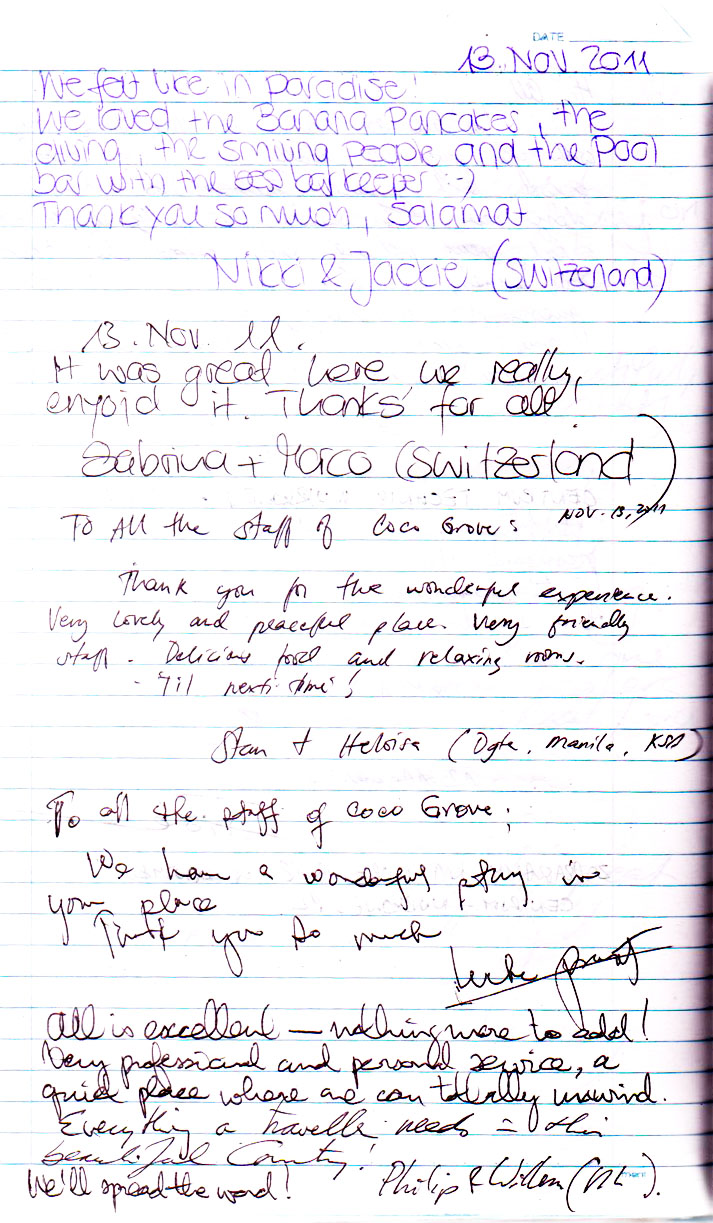 DATE
13. NOV. 2011
We felt like in paradise!
We loved the Banana Pancakes, the
diving, the smiling people and the Pool
bar with the bar keeper :-)
Thank you so much, Salamat
Nikki & Jackie (Switzerland)
13. Nov. 11.
It was great here we really,
enyoid it. Thanks for all!
Sabrina + Marco (Switzerland)
NOV. 13, 2011
To All the staff of Coco Grove:
Thank you for the wonderful experience.
Very lovely and peaceful place. Very friendly
staff. Delicious food and relaxing rooms.
- Til next time!
Stan + Heloisa (Dgte, Manila, KSA)
To all the staff of Coco Grove;
We have a wonderful stay in
your place
Thank you so much
All is excellent — nothing more to add!
Very professional and personal service, a
quiet place where one can totally unwind.
Everything a traveller needs = this
beautiful Country!
We'll spread the word!
Philip & Willem (NL).